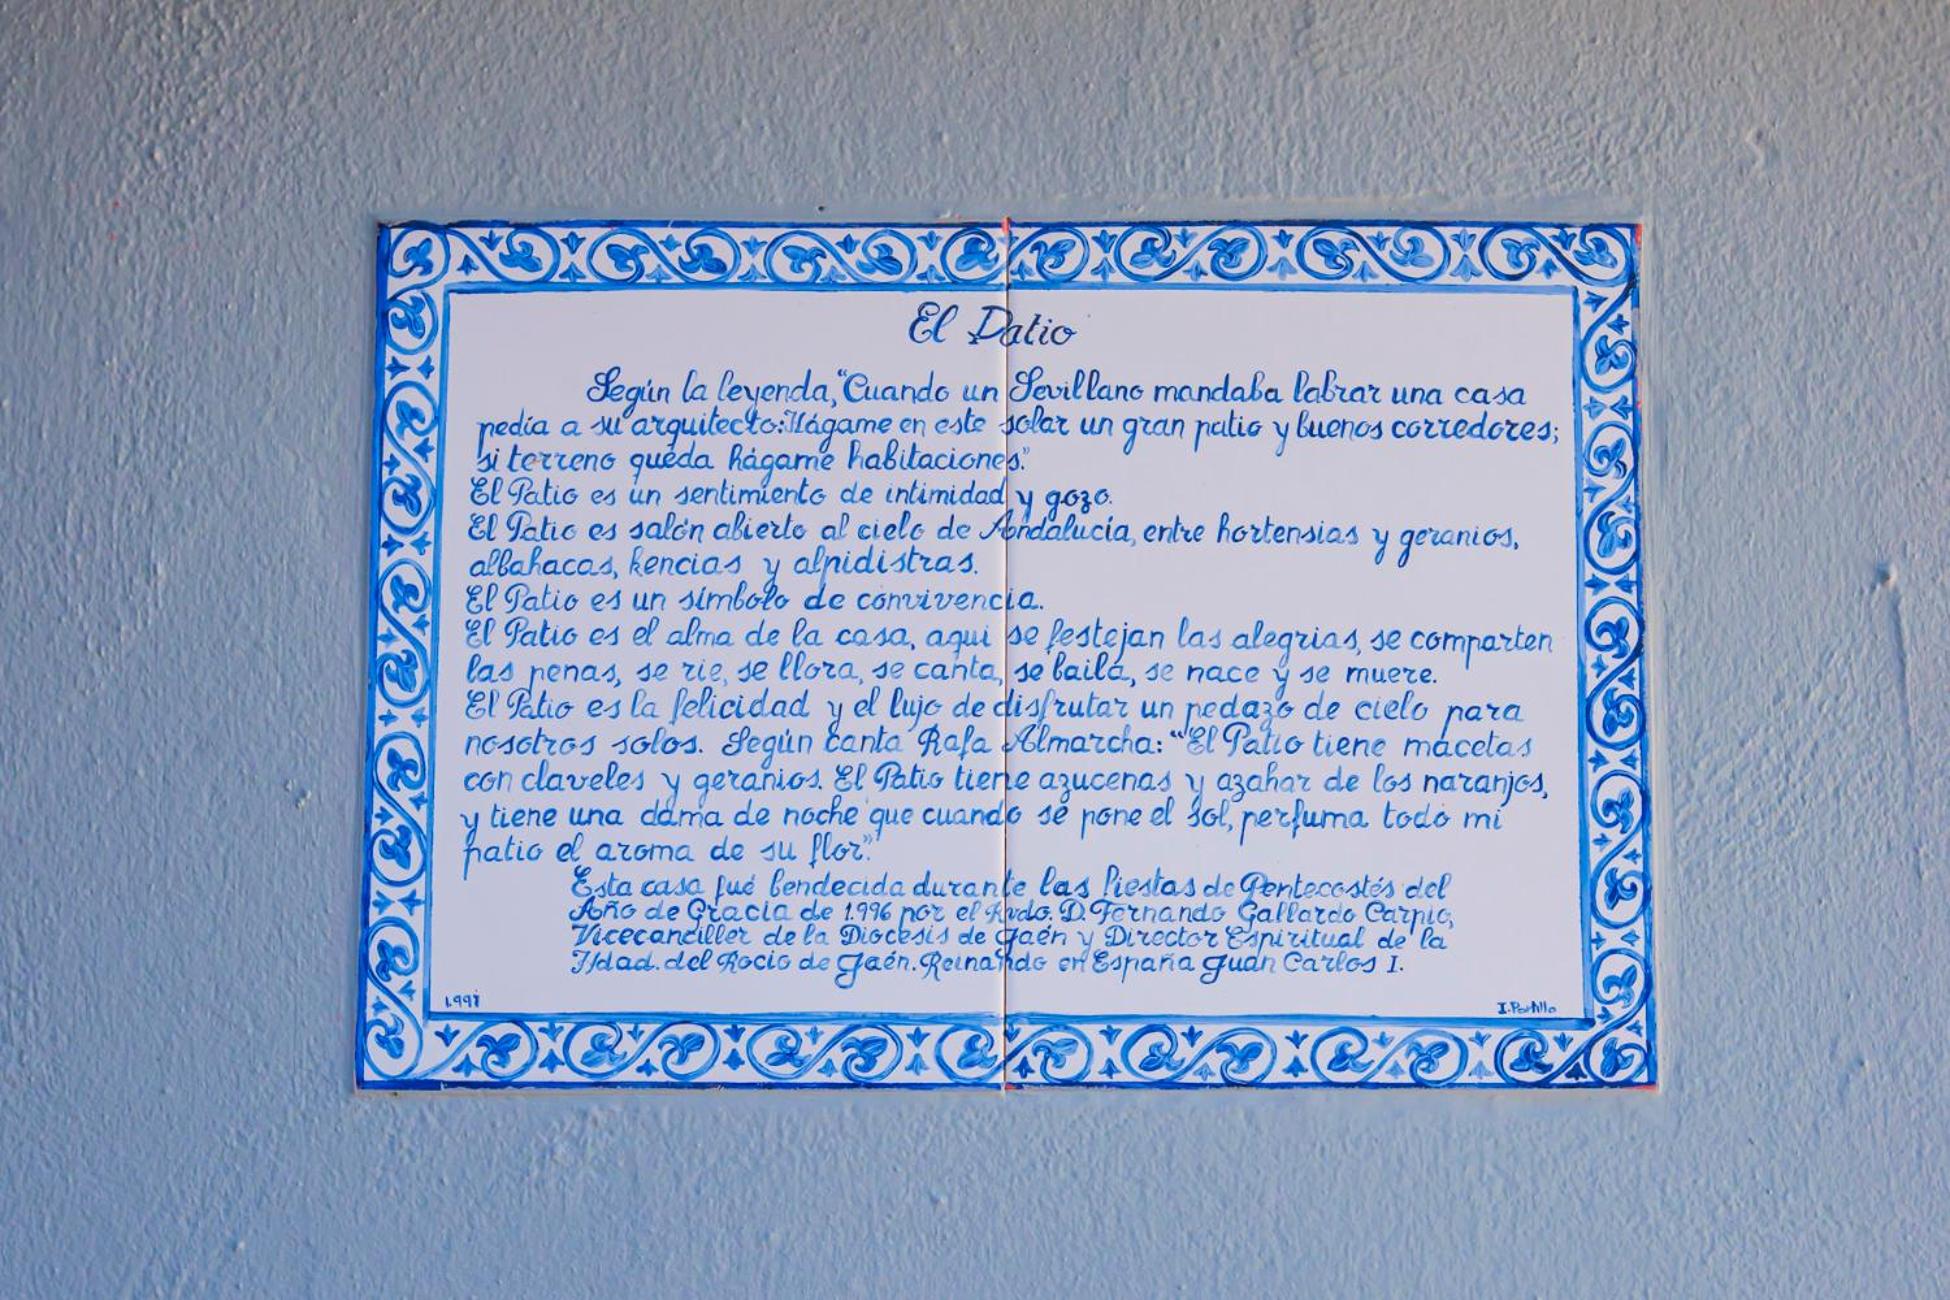 El Patio
Según la leyenda, "Cuando un Sevillano mandaba labrar una casa
pedía a su arquitecto: Hágame en este solar un gran patio y buenos corredores;
si terreno queda hágame habitaciones."
El Patio es un sentimiento de intimidad y gozo.
El Patio es salón abierto al cielo de Andalucía, entre hortensias y geranios,
albahacas, kencias y alpidistras.
El Patio es un símbolo de convivencia.
El Patio es el alma de la casa, aquí se festejan las alegrias, se comparten
las penas, se rie, se llora, se canta, se baila, se nace y se muere.
El Patio es la felicidad y el lujo de disfrutar un pedazo de cielo para
nosotros solos. Según canta Rafa Almarcha: "El Patio tiene macetas
con claveles y geranios. El Patio tiene azucenas y azahar de los naranjos,
y tiene una dama de noche que cuando se pone el sol, perfuma todo mi
patio el aroma de su flor".
Esta casa fué bendecida durante las fiestas de Pentecostés del
Año de Gracia de 1.996 por el Rvdo. D. Fernando Gallardo Carpio,
Vicecanciller de la Diócesis de Jaén y Director Espiritual de la
Hdad. del Rocio de Jaén. Reinando en España Juan Carlos I.
I. Portillo